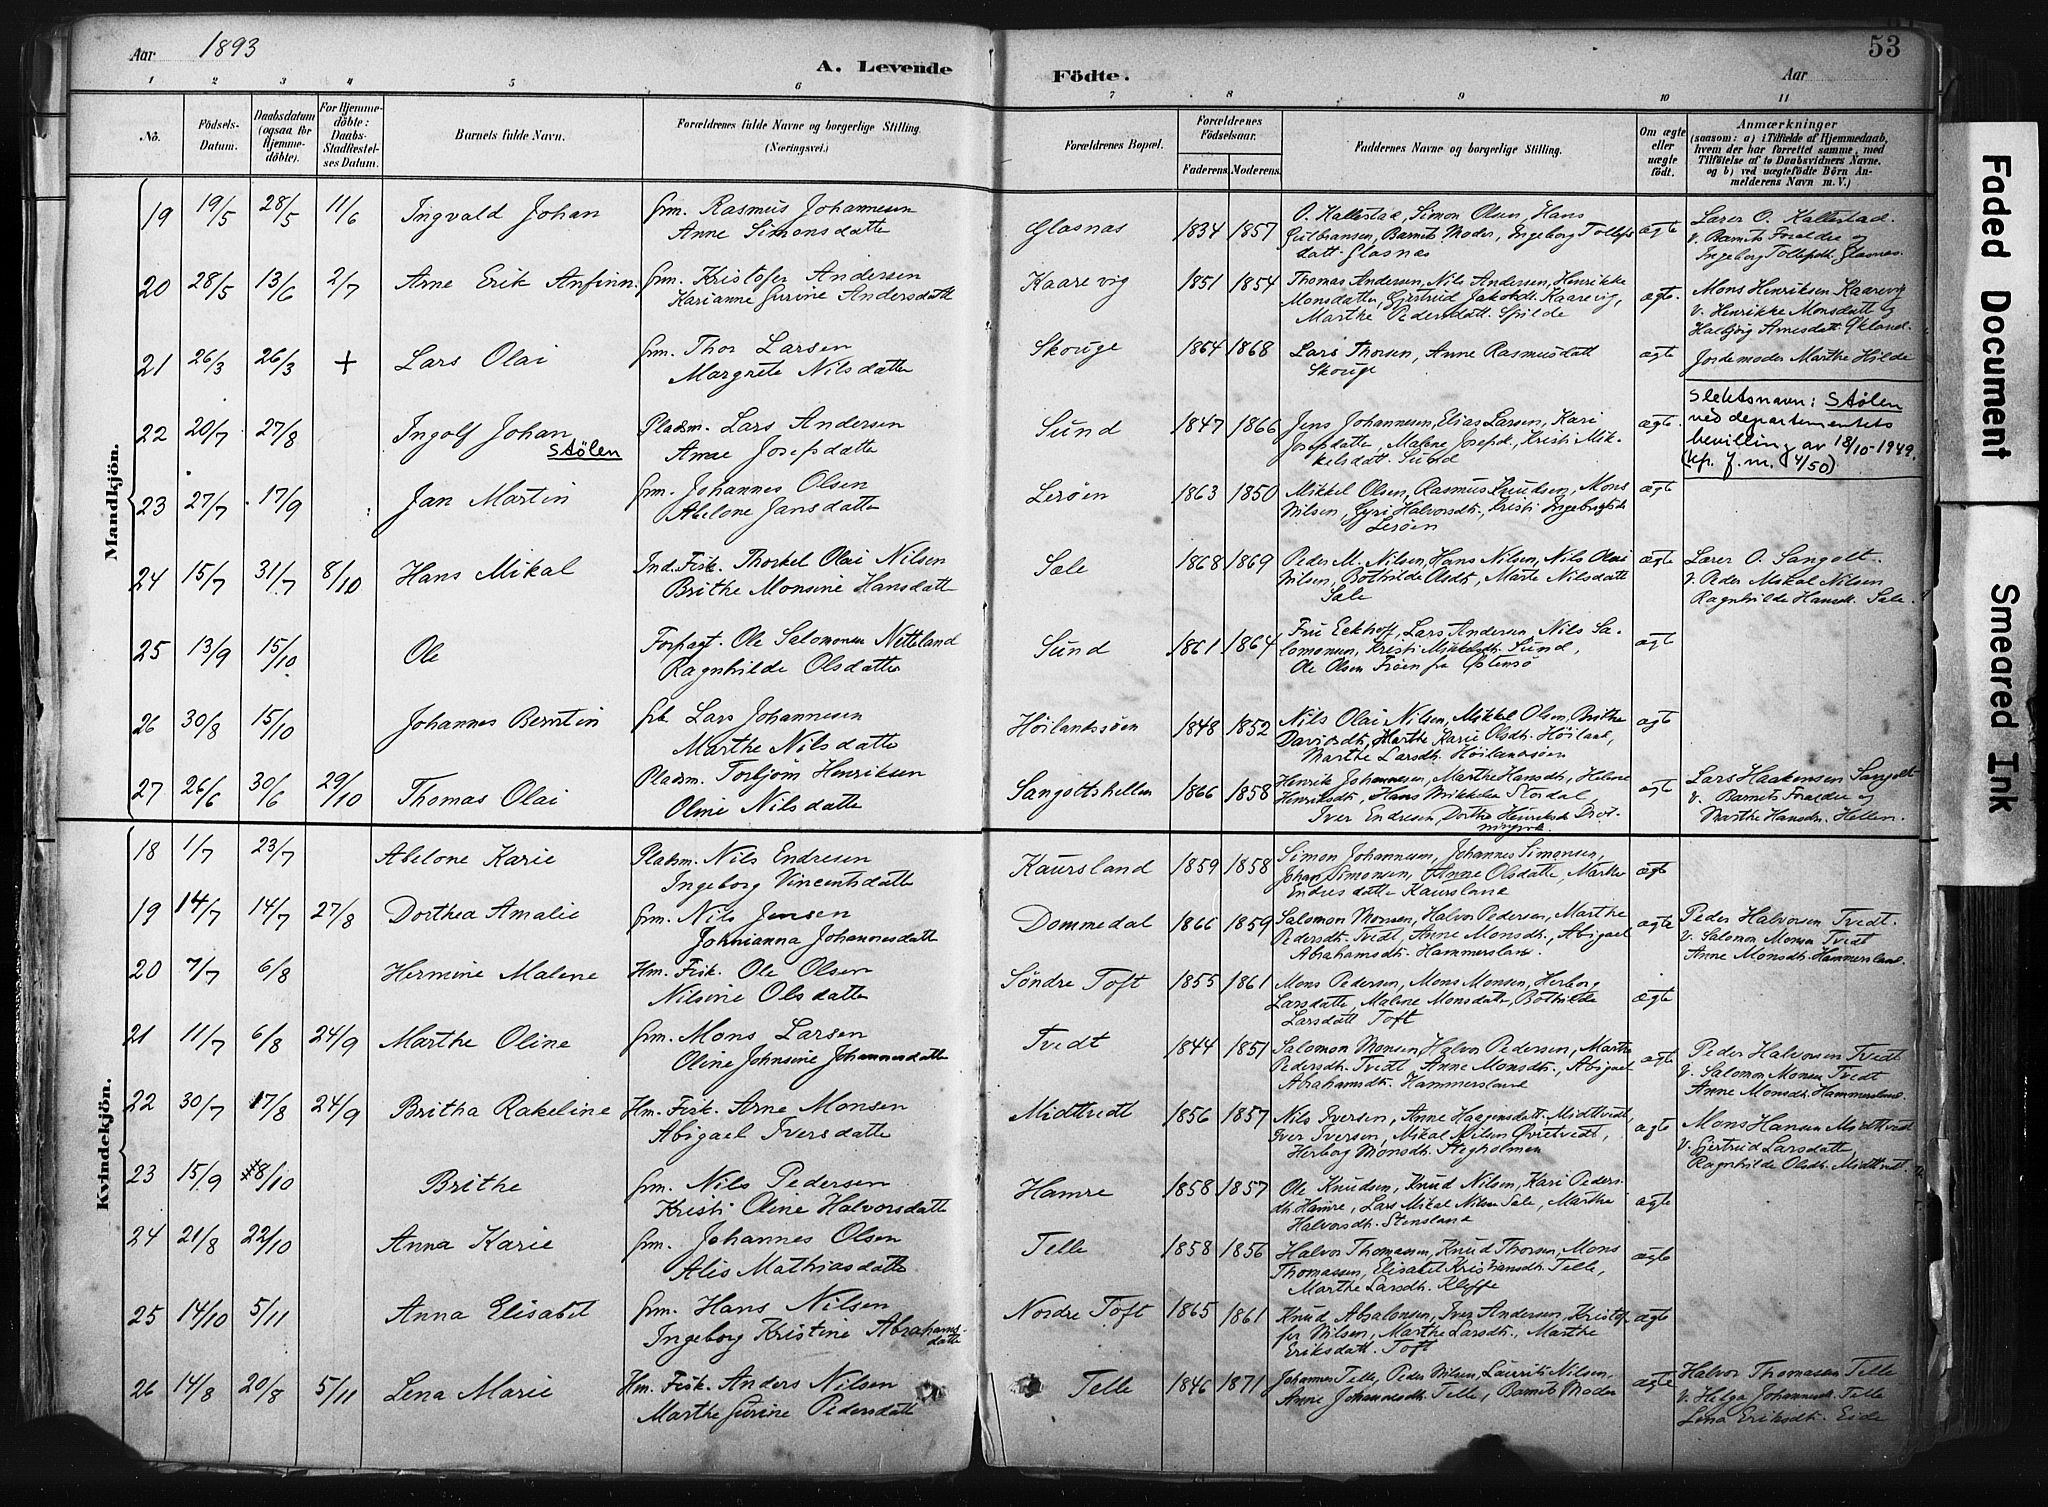 Aar 1893
A. Levende Födte.
Aar
53
1 2 3 4 5 6 7 8 9 10 11
No.
Födsels-Datum.
Daabsdatum (ogsaa för Hjemmedöbte).
For Hjemmedöbte: Daabs-Stadfæstelses Datum.
Barnets fulde Navn.
Forældrenes fulde Navne og borgerlige Stilling. (Næringsvei.)
Forældrenes Bopæl.
Forældrenes Födselsaar.
Faderens. Moderens.
Faddernes Navne og borgerlige Stilling.
Om ægte eller uægte födt.
Anmærkninger
(saasom: a) i Tilfælde af Hjemmedaab, hvem der har forrettet samme, med Tilföielse af to Daabsvidners Navne, og b) ved uægtefödte Börn Anmelderens Navn m. V.)
Mandkjön.
19 19/5 28/5 11/6 Ingvald Johan Grm. Rasmus Johannesen
Anne Simonsdatter
Glasnas 1834 1857 O. Kallestad, Simon Olsen, Hans
Gulbransen, Barnets Moder, Ingeborg Tollefs
datt. Glasnas
ægte Lærer O. Kallestad.
v. Barnets Forældre og
Ingeborg Tollefsdt. Glasnas.
20 28/5 13/6 2/7 Arne Erik Anfinn. Grm. Kristofer Andersen
Karianne Gurine Andersdatt
Kaarevig 1851 1854 Thomas Andersen, Nils Andersen, Henrikke
Monsdatter, Gjertrud Jakobdt. Kaarevig,
Marthe Pedersdatt. Spilde
ægte. Mons Henriksen Kaarevig
v. Henrikke Monsdatt og
Halbjörg Arnesdatt. Økland.
21 26/3 26/3 + Lars Olai Grm. Thor Larsen
Margrete Nilsdatter
Skouge 1864 1868 Lars Thorsen, Anne Rasmusdatt
Skouge
ægte Jordemoder Marthe Hilde
22 20/7 27/8 Ingolf Johan
Stølen
Pladsm. Lars Andersen
Anne Josefsdatter
Sund 1847 1866 Jens Johannesen, Elias Larsen, Kari
Josefsdatter, Malene Josefsdt., Kristi Mik-
kelsdatt. Sund
ægte Slektsnavn: Stølen
ved departementets
bevilling av 18/10-1949.
(kfr. j.nr. 4/50)
23 27/7 17/9 Jan Martin Grm. Johannes Olsen
Abelone Jansdatter
Lerøen 1863 1850 Mikkel Olsen, Rasmus Knudsen, Mons
Nilsen, Gyri Halvorsdt., Kristi Ingebrigtsdt.
Lerøen
ægte
24 15/7 31/7 8/10 Hans Mikal Ind. Fisk. Thorkel Olai Nilsen
Brithe Monsine Hansdatter
Sale 1868 1869 Peder M. Nilsen, Hans Nilsen, Nils Olai
Nilsen, Bothilde Olsdt., Marte Nilsdatter
Sale
ægte Lærer O. Sangolt.
v. Peder Mikal Nilsen
Ragnhilde Hansdt. Sale.
25 13/9 15/10 Ole Forpagt. Ole Salomonsen Netteland
Ragnhilde Olsdatter
Sund 1861 1864 Fru Eckhoff, Lars Andersen, Nils Sa-
lomonsen, Kristi Mikkelsdt. Sund,
Ole Olsen Frøen fra Østensø
ægt
26 30/8 15/10 Johannes Berntin Grb. Lars Johannesen
Marthe Nilsdatter
Höilandssöen 1848 1852 Nils Olai Nilsen, Mikkel Olsen, Brithe
Davidsdt., Marthe Karie Olsdt. Höiland,
Marthe Larsdt. Höilandssöen
ægte
27 26/6 30/6 29/10 Thomas Olai Pladsm. Torbjörn Henriksen
Oline Nilsdatter
Sangoltshellen 1866 1858 Henrik Johannesen, Marthe Hansdt., Helene
Henriksdt., Hans Mikkelsen Stordal
Iver Endresen, Dorthe Henriksdt. Drot-
ningsvik.
ægt Lars Haakensen Sangolt
v. Barnets Forældre og
Marthe Hansdtr. Hellen.
Kvindekjön.
18 1/7 23/7 Abelone Karie Pladsm. Nils Endresen
Ingeborg Vincentsdatter
Kausland 1859 1858 Simon Johannesen, Johannes Simonsen,
Johan Simonsen, Anne Olsdatter, Marthe
Endresdatter Kausland
ægt
19 14/7 14/7 27/8 Dorthea Amalie Grm. Nils Jensen
Johnianna Johannesdatter
Dommedal 1866 1859 Salomon Monsen, Halvor Pedersen, Marthe
Pedersdt. Tvedt, Anne Monsdt., Abigael
Abrahamsdt. Hammersland.
ægte Peder Halvorsen Tvedt.
v. Salomon Monsen Tvedt
Anne Monsdt. Hammersland.
20 7/7 6/8 Hermine Malene Hm. Fisk. Ole Olsen
Nilsine Olsdatter
Söndre Toft 1855 1861 Mons Pedersen, Mons Monsen, Herborg
Larsdatter, Malene Monsdatter, Bothilde
Larsdatt Toft
ægte
21 11/7 6/8 24/9 Marthe Oline Grm. Mons Larsen
Oline Johnsine Johannesdatter
Tvedt 1844 1851 Salomon Monsen, Halvor Pedersen, Marthe
Pedersdt. Tvedt Anne Monsdt., Abigael
Abrahamsdt. Hammersland
ægte Peder Halvorsen Tvedt
v. Salomon Monsen Tvedt
Anne Monsdt. Hammersland.
22 30/7 17/8 24/9 Britha Rakeline Hm. Fisk. Arne Monsen
Abigael Iversdatter
Midttvedt 1856 1857 Nils Iversen, Anne Haagensdatt. Midttvedt,
Iver Iversen, Mikal Nilsen Øvretvedt,
Herborg Monsdt. Stegholmen
ægte Mons Hansen Midttvedt
v. Gjertrud Larsdatter,
Ragnhilde Olsdt. Midttvedt.
23 15/9 8/10 Brithe Grm. Nils Pedersen
Kristi Oline Halvorsdatter
Hamre 1858 1857 Ole Knudsen, Knud Nilsen, Kari Peders-
dt. Hamre, Lars Mikal Nilsen Sale, Marthe
Halvorsdt. Stensland
ægte
24 21/8 22/10 Anna Karie Grm. Johannes Olsen
Alis Mathiasdatter
Telle 1858 1856 Halvor Thomassen, Knud Thorsen, Mons
Thomassen, Elisabet Kristiansdt. Telle,
Marthe Larsdt. Kleppe
ægte
25 14/10 5/11 Anna Elisabet Grm. Hans Nilsen
Ingeborg Kristine Abrahams-
datter
Nordre Toft 1865 1861 Knud Absalonsen, Iver Andersen, Kristof-
fer Nilsen, Marthe Larsdt., Marthe
Eriksdatt. Toft
ægte
26 14/8 20/8 5/11 Lena Marie Hm. Fisk. Anders Nilsen
Marthe Gurine Pedersdatter
Telle 1846 1871 Johannes Telle, Peder Nilsen, Laurits Nilsen,
Anne Johannesdt. Telle, Barnets Moder
ægte Halvor Thomasen Telle
v. Helga Johannesdt. Telle
Lena Eriksdt. Eide
Faded Document
Smeared Ink